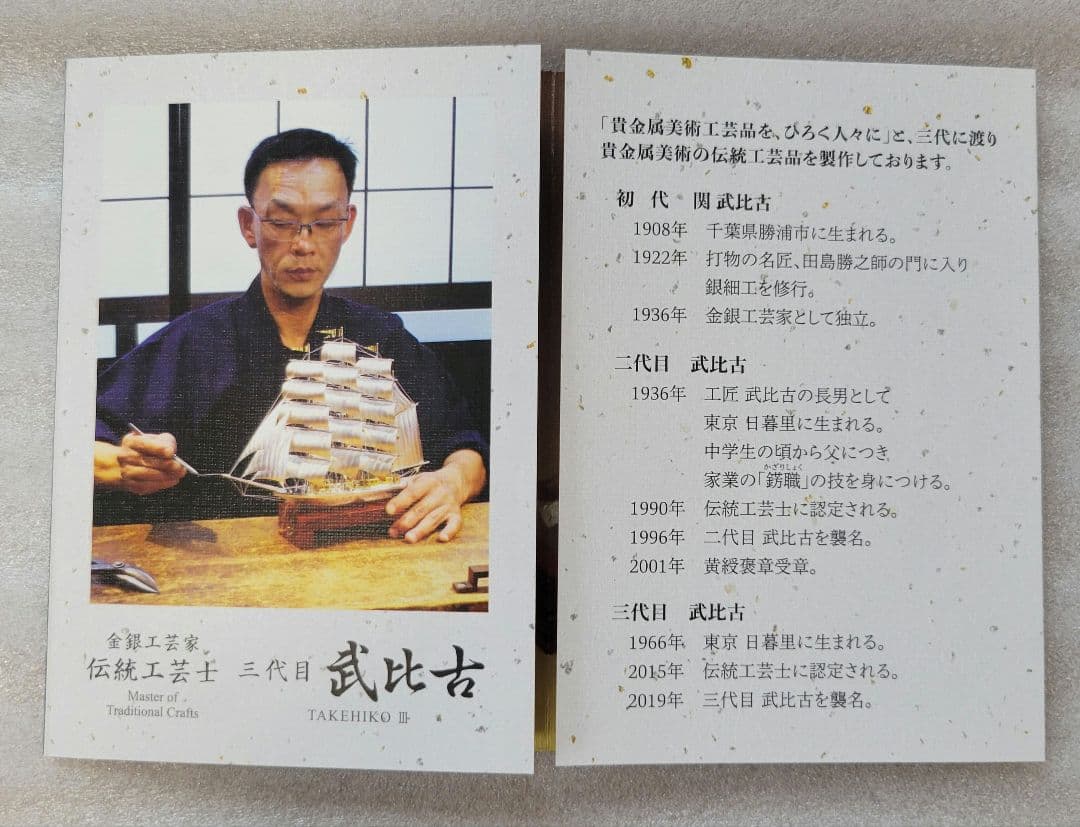 金銀工芸家
伝統工芸士 三代目 武比古
Master of
Traditional Crafts
TAKEHIKO Ⅲ
「貴金属美術工芸品を、ひろく人々に」と、三代に渡り
貴金属美術の伝統工芸品を製作しております。
初　代　関 武比古
1908年 千葉県勝浦市に生まれる。
1922年 打物の名匠、田島勝之師の門に入り
銀細工を修行。
1936年 金銀工芸家として独立。
二代目　武比古
1936年 工匠 武比古の長男として
東京 日暮里に生まれる。
中学生の頃から父につき
かざりしょく
家業の「錺職」の技を身につける。
1990年 伝統工芸士に認定される。
1996年 二代目 武比古を襲名。
2001年 黄綬褒章受章。
三代目　武比古
1966年 東京 日暮里に生まれる。
2015年 伝統工芸士に認定される。
2019年 三代目 武比古を襲名。